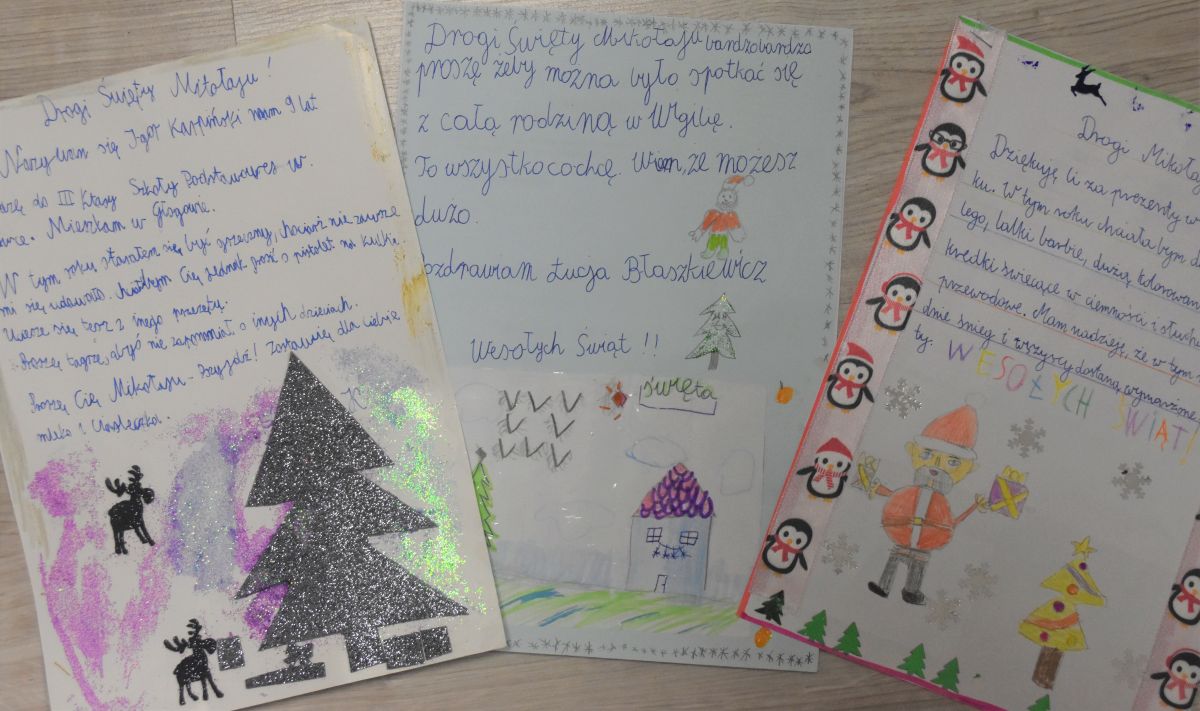 Drogi Święty Mikołaju!
Nazywam się Igor Karpiński mam 9 lat
do III klasy Szkoły Podstawowej w
Mieszkam w Głogowie.
W tym roku starałem się być grzeczny, chociaż nie zawsze
mi się udawało. Chciałbym Cię jednak prosić o pistolet na kulki.
Uciesze się też z inego prezętu.
Proszę także, abyś nie zapomniał o inych dzieciach.
Proszę Cię Mikołaju - Przyjdź! Zostawię dla Ciebie
mleko i ciasteczka.
Drogi Święty Mikołaju bardzobardzo
proszę żeby można było spotkać się
z całą rodziną w Wigilię.
To wszystko co chcę. Wiem, że możesz
dużo.
ozdrawiam Łucja Błaszkiewicz
Wesołych Świąt !!
święta
Drogi Mikoła
Dziękuję Ci za prezenty w
ku. W tym roku chciała bym d
lego, lalki barbie, dużą kolorowan
kredki świecące w ciemności i słucha
przewodowe. Mam nadzieję, że w tym
dnie śnieg i wszyscy dostaną wymarzone
ty.
WESOŁYCH ŚWIĄT!